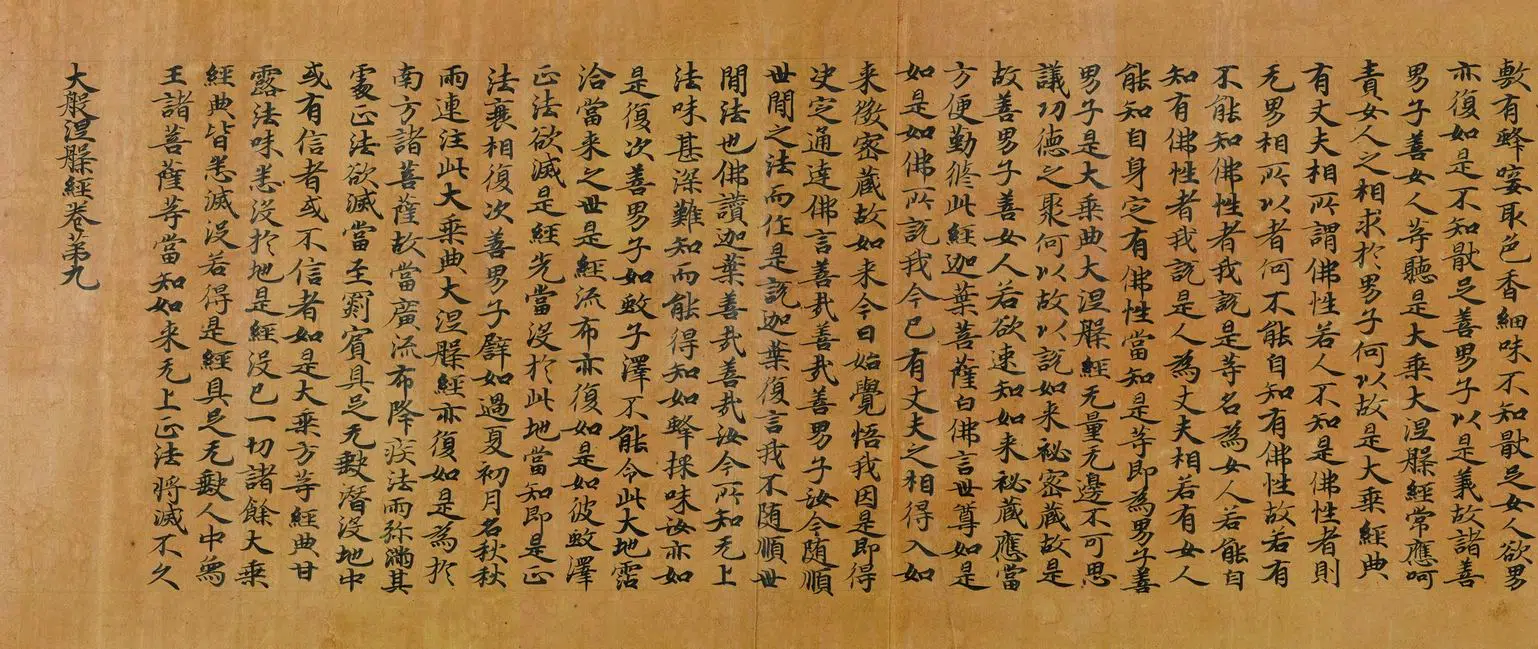 敷有蜂唼取色香細味不知猒足女人欲男
亦復如是不知猒足善男子以是義故諸善
男子善女人等聽是大乘大涅槃經常應呵
責女人之相求於男子何以故是大乘經典
有丈夫相所謂佛性若人不知是佛性者則
无男相所以者何不能自知有佛性故若有
不能知佛性者我說是等名為女人若能自
知有佛性者我說是人為丈夫相若有女人
能知自身定有佛性當知是等即為男子善
男子是大乘典大涅槃經无量无邊不可思
議功德之聚何以故以說如来秘密蔵故是
故善男子善女人若欲速知如来秘蔵應當
方便勤脩此經迦葉菩薩白佛言世尊如是
如是如佛所說我今已有丈夫之相得入如
来微密蔵故如来今日始覺悟我因是即得
决定通達佛言善㦲善㦲善男子汝今随順
世間之法而作是說迦葉復言我不随順世
間法也佛讚迦葉善㦲善㦲汝今所知无上
法味甚深難知而能得知如蜂採味汝亦如
是復次善男子如蚊子澤不能令此大地霑
洽當来之世是經流布亦復如是如彼蚊澤
正法欲滅是經先當没於此地當知即是正
法衰相復次善男子譬如過夏初月名秋秋
雨連注此大乘典大涅槃經亦復如是為於
南方諸菩薩故當廣流布降疾法雨弥滿其
處正法欲滅當至罽賓具足无缺潛没地中
或有信者或不信者如是大乘方等經典甘
露法味悉没於地是經没已一切諸餘大乘
經典皆悉滅没若得是經具足无缺人中為
王諸菩薩等當知如来无上正法將滅不久
大般涅槃經卷第九